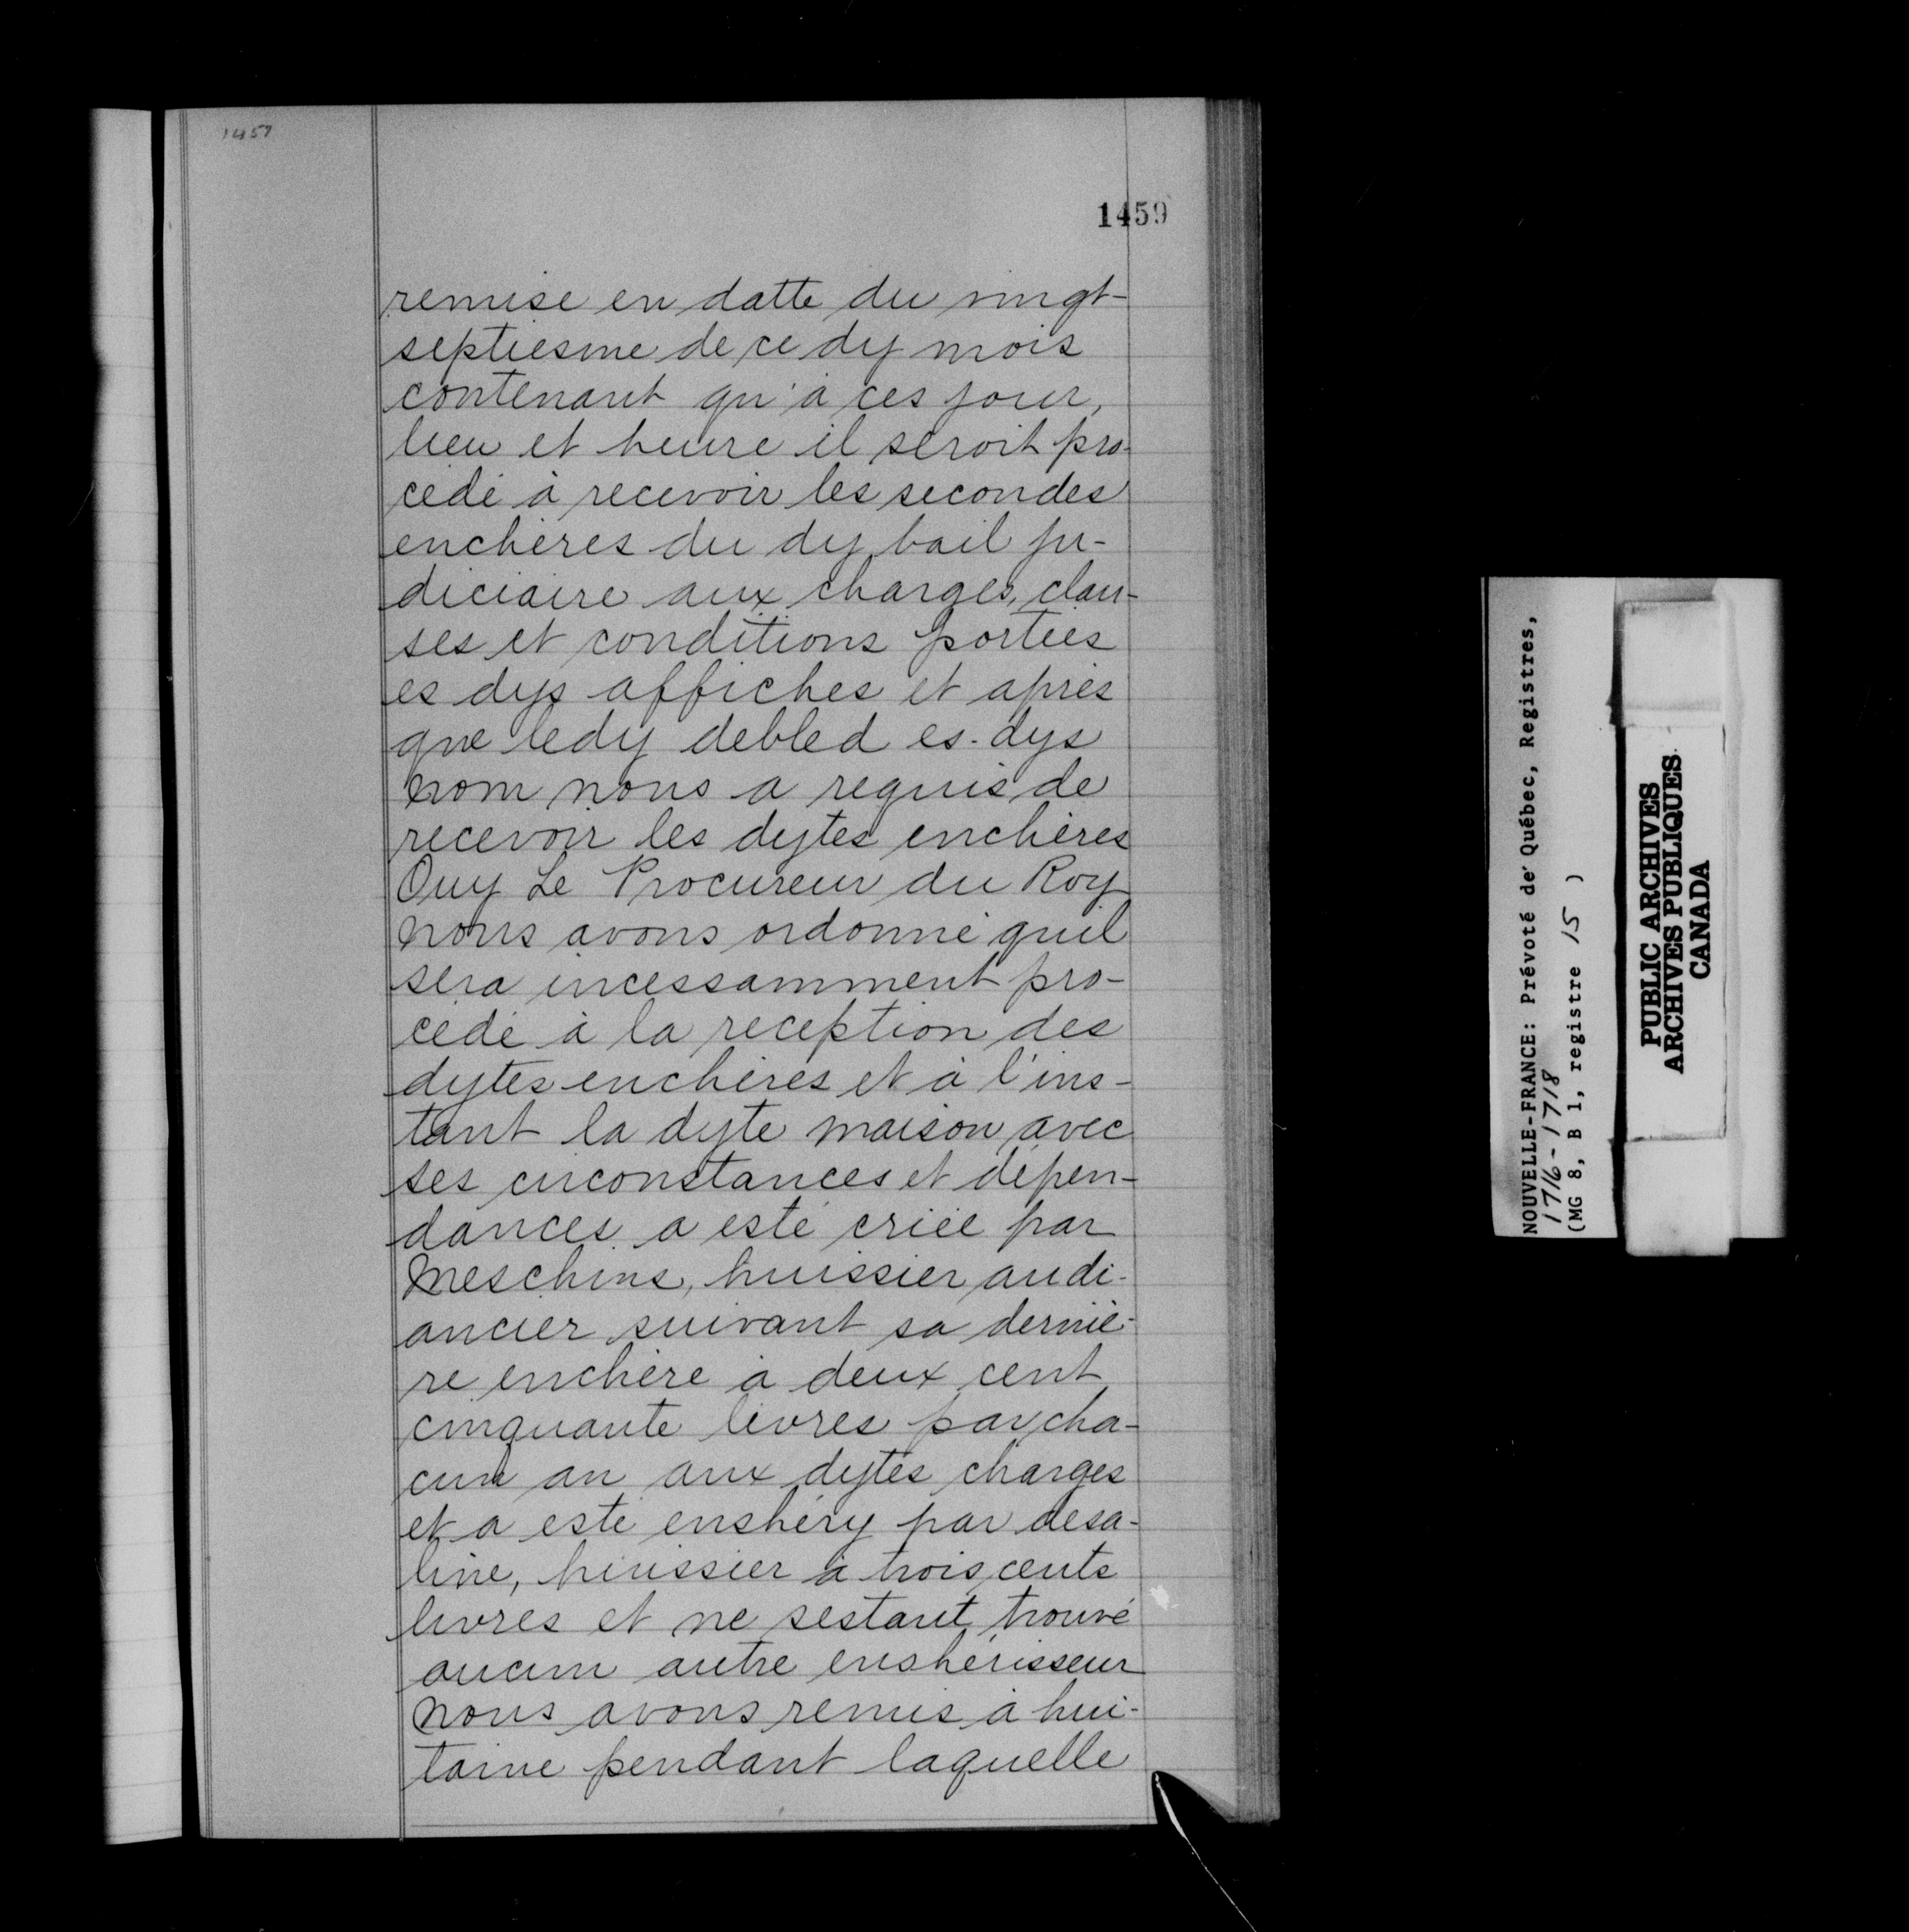 1457
1459
remise en datte du vingt-
septiesme de ce dy mois
contenant qu'à ces jour,
lieu et heure il seroit pro-
cédé à recevoir les secondes
enchères du dy bail ju-
diciaire aux charges, clau-
ses et conditions portées
es dys affiches et après
que ledy debled es-dys
nom nous a requis de
recevoir les dytes enchères
Ouy Le Procureur du Roy
nous avons ordonné quil
sera incessamment pro-
cédé à la reception des
dytes enchères et à l'ins-
tant la dyte maison avec
ses circonstances et dépen-
dances a esté criée par
Meschins, huissier audi-
ancier suivant sa derniè-
re enchère à deux cent
cinquante livres par cha-
cun an aux dytes charges
et a esté enshéry par desa-
line, huissier à trois cents
livres et ne sestant trouvé
aucun autre enshérisseur
nous avons remis à hui-
taine pendant laquelle
NOUVELLE-FRANCE: Prévoté de Québec, Registres,
1716-1718
(MG 8, B 1, registre 15 )
PUBLIC ARCHIVES
ARCHIVES PUBLIQUES
CANADA